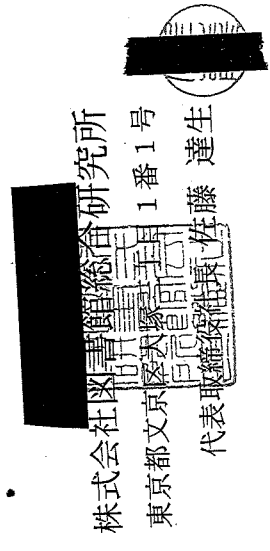 株式会社図書館総合研究所
東京都文京区大塚三丁目1番1号
代表取締役社長 佐藤 達生